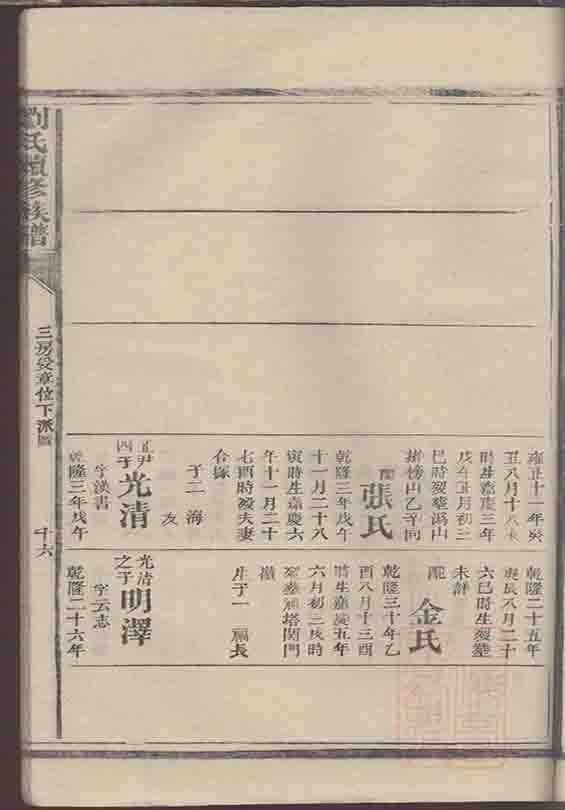 雍正十一年癸
丑八月十八未
時生嘉慶三年
戊午五月初三
巳時歿葬馮山
山乙辛向
配張氏
乾隆三年戊午
十一月二十八
寅時生嘉慶六
年十一月二十
七酉時歿夫妻
合塚
子二 海
友
正尹四子光清
字漢書
乾隆三年戊午
乾隆二十五年
庚辰八月二十
六巳時生歿葬
未詳
配金氏
乾隆三十年乙
酉八月十三酉
時生嘉慶五年
六月初二戌時
歿葬福塔関門
嶺
生子一 福長
光清之子明澤
字云志
乾隆二十六年
劉氏續修族譜
三房受章位下派
十六